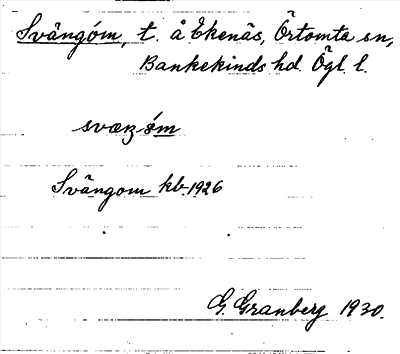 Svängóm, t. å Ekenäs, Örtomta sn,
Bankekinds hd. Ögl. l.
svæŋóm
Svängom kb. 1926
G. Granberg 1930.